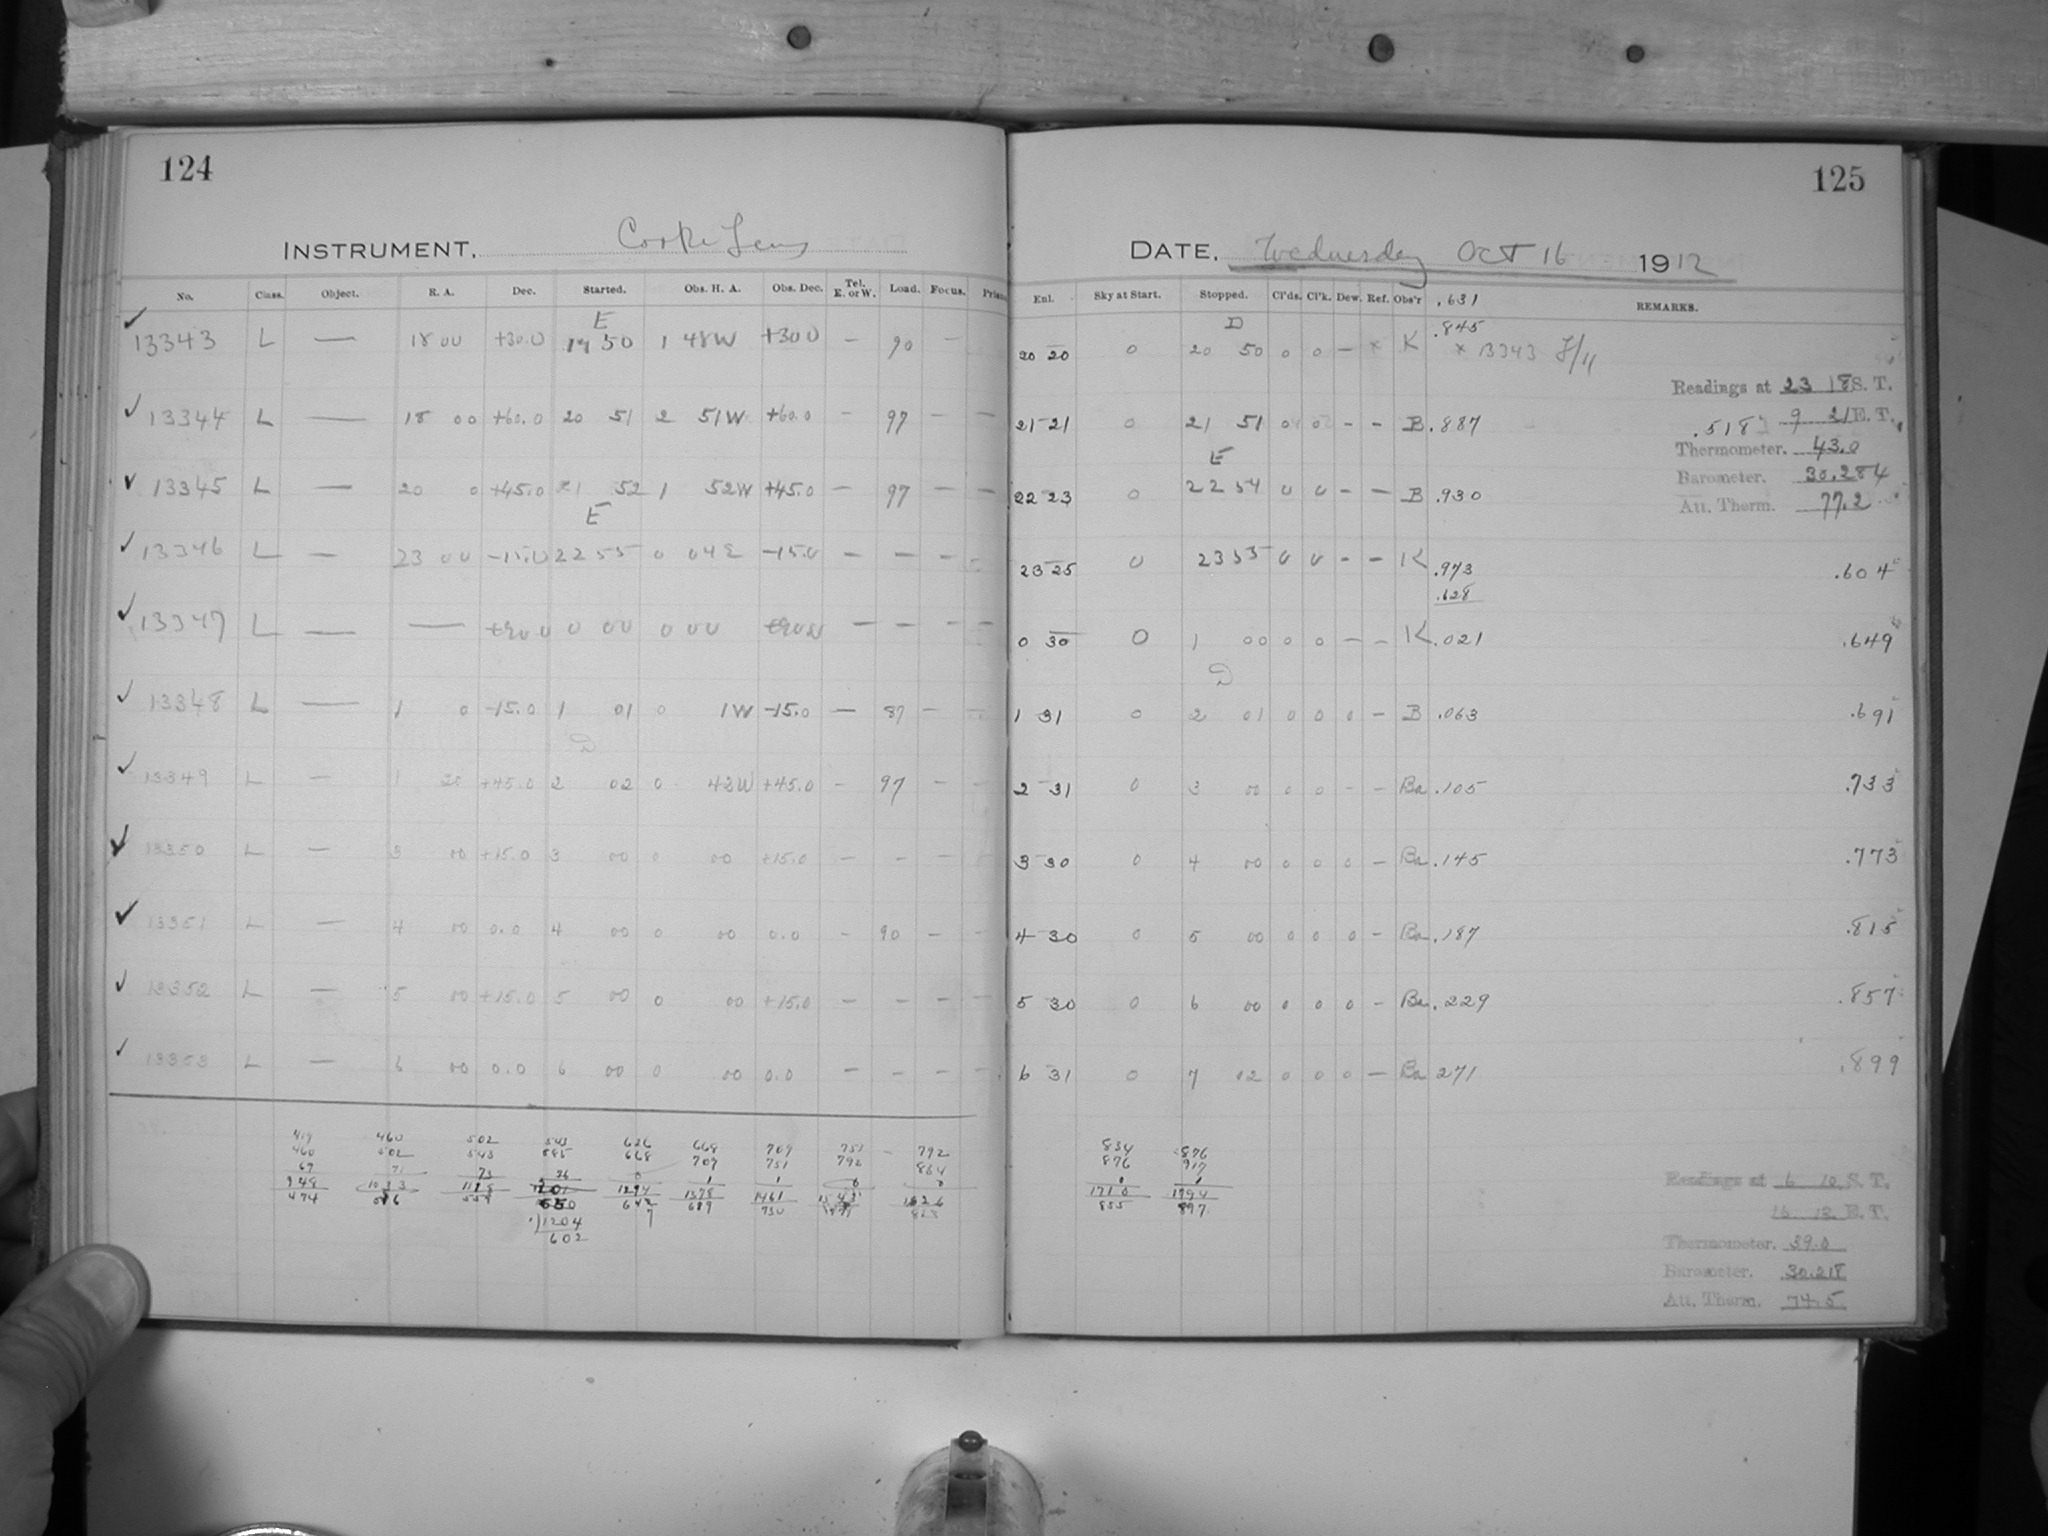 124
INSTRUMENT. Cooke Lens
No. Class. Object. R. A. Dec. Started. Obs. H. A. Obs. Dec. Tel. E. or W. Load. Focus.
E
13343 L — 18 00 +30.0 19 50 1 48W +30 0 — 90 —
13344 L — 18 00 +60.0 20 51 2 51W +60.0 — 97 — —
13345 L — 20 0 +45.0 21 52 1 52W +45.0 — 97 — —
E
13346 L — 23 00 -15.0 22 55 0 04E -15.0 — — —
13347 L — — +90 0 0 00 0 00 +90.0 — — —
13348 L — 1 0 -15.0 1 01 0 1W -15.0 — 87 — —
D
13349 L — 1 20 +45.0 2 02 0 42W +45.0 — 97 — —
13350 L — 3 00 +15.0 3 00 0 00 +15.0 — — —
13351 L — 4 00 0.0 4 00 0 00 0.0 — 90 — —
13352 L — 5 00 +15.0 5 00 0 00 +15.0 — — — —
13353 L — 6 00 0.0 6 00 0 00 0.0 — — — —
419 460 502 543 626 668 709 751 792
460 502 543 585 668 709 751 792 834
67 71 73 76 0 1 1 0 0
948 1033 1118 1201 1294 1378 1461 1543 1626
474 559 650 647 689 730
1204
602
125
DATE. Wednesday Oct 16 1912
Enl. Sky at Start. Stopped. Cl'ds. Cl'k. Dew. Ref. Obs'r .631 REMARKS.
D .845
20 20 0 20 50 0 0 — x K x 13343 f/11
Readings at 23 18 S. T.
21 21 0 21 51 0 0 — — B .887 .518 9 21 E. T.
Thermometer. 43.0
E
22 23 0 22 54 0 0 — — B .930 Barometer. 30.284
Att. Therm. 77.2
23 25 0 23 55 0 0 — — K .973 .604
.628
0 30 0 1 00 0 0 — — K .021 .649
D
1 31 0 2 01 0 0 0 — B .063 .691
2 31 0 3 00 0 0 — — Ba .105 .733
3 30 0 4 00 0 0 0 — Ba .145 .773
4 30 0 5 00 0 0 0 — Ba .187 .815
5 30 0 6 00 0 0 0 — Ba .229 .857
6 31 0 7 02 0 0 0 — Ba 271 .899
834 876
876 917
0 1
1710 1794
855 897
Readings at 6 10 S. T.
16 12 E. T.
Thermometer. 39.0
Barometer. 30.218
Att. Therm. 74.5